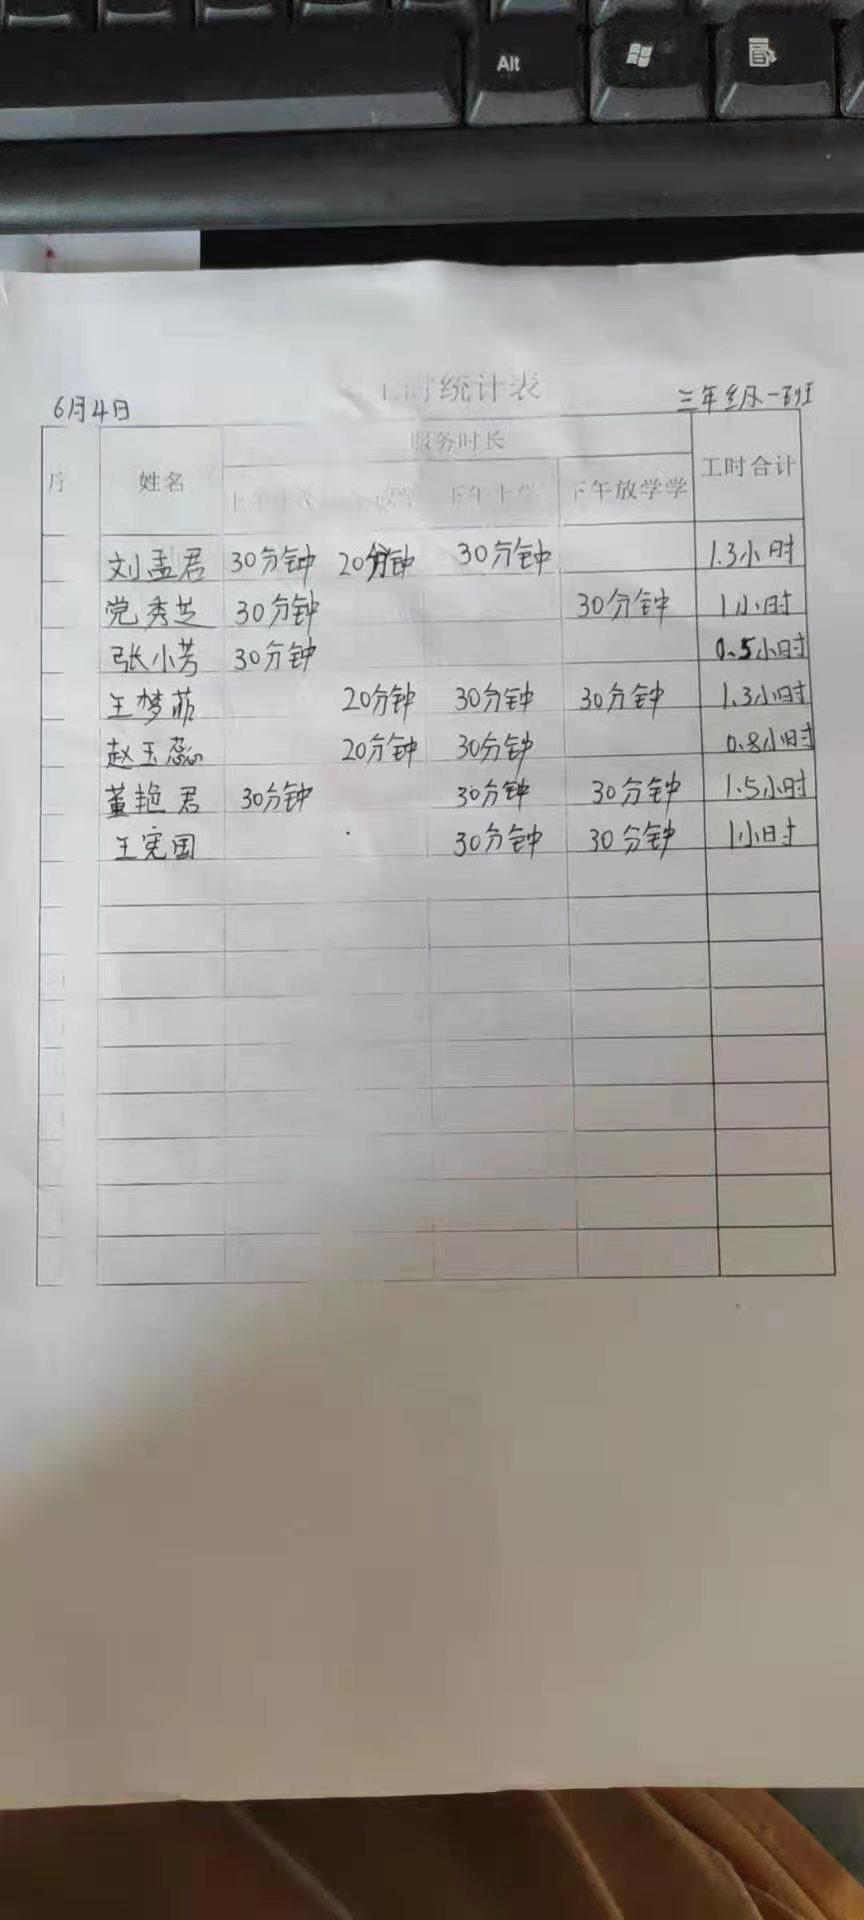 Alt
工时统计表
6月4日
三年级一班
序
姓名
服务时长
工时合计
上午上学
放学
下午上学
下午放学学
刘孟君 30分钟 20分钟 30分钟 1.3小时
党秀芝 30分钟 30分钟 1小时
张小芳 30分钟 0.5小时
王梦茹 20分钟 30分钟 30分钟 1.3小时
赵玉蕊 20分钟 30分钟 0.8小时
董艳君 30分钟 30分钟 30分钟 1.5小时
王宪国 30分钟 30分钟 1小时